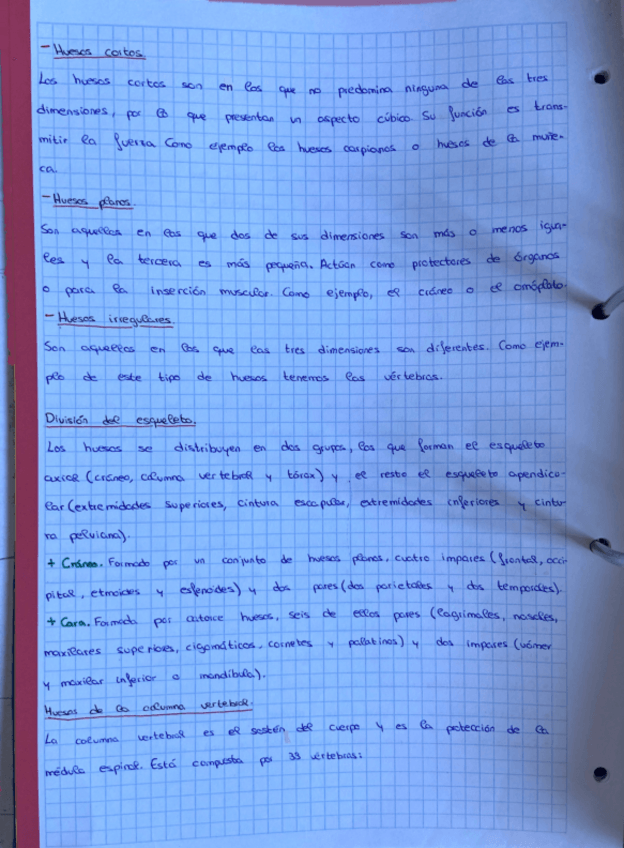 - Huesos cortos.
Los huesos cortos son en los que no predomina ninguna de las tres
dimensiones, por lo que presentan un aspecto cúbico. Su función es trans-
mitir la fuerza. Como ejemplo los huesos carpianos o huesos de la muñe-
ca.
- Huesos planos.
Son aquellos en los que dos de sus dimensiones son más o menos igua-
les y la tercera es más pequeña. Actúan como protectores de órganos
o para la inserción muscular. Como ejemplo, el cráneo o el omóplato.
- Huesos irregulares.
Son aquellos en los que las tres dimensiones son diferentes. Como ejem-
plo de este tipo de huesos tenemos las vértebras.
División del esqueleto.
Los huesos se distribuyen en dos grupos, los que forman el esqueleto
axial (cráneo, columna vertebral y tórax) y el resto el esqueleto apendicu-
lar (extremidades superiores, cintura escapular, extremidades inferiores y cintu-
ra pelviana).
+ Cráneo. Formado por un conjunto de huesos planos, cuatro impares (frontal, occi-
pital, etmoides y esfenoides) y dos pares (dos parietales y dos temporales).
+ Cara. Formada por catorce huesos, seis de ellos pares (lagrimales, nasales,
maxilares superiores, cigomáticos, cornetes y palatinos) y dos impares (vómer
y maxilar inferior o mandíbula).
Huesos de la columna vertebral.
La columna vertebral es el sostén del cuerpo y es la protección de la
médula espinal. Está compuesta por 33 vértebras: